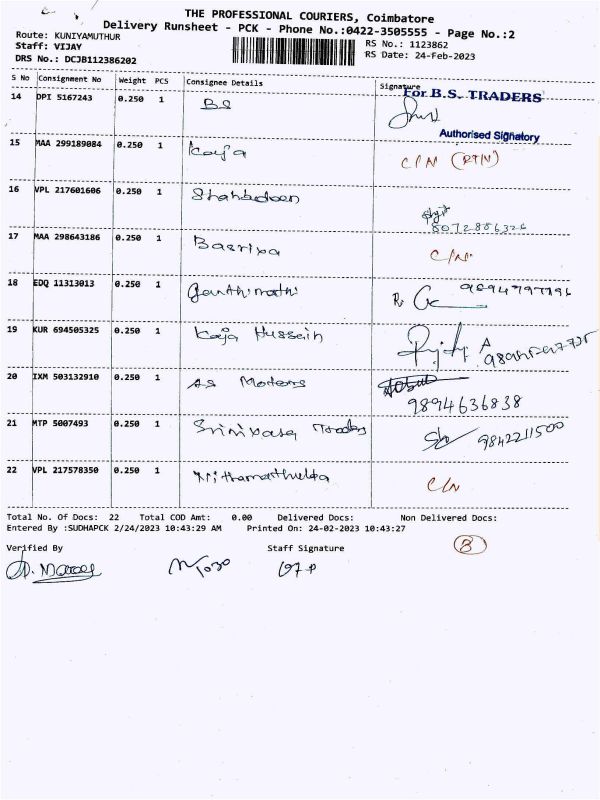 THE PROFESSIONAL COURIERS, Coimbatore
Delivery Runsheet - PCK - Phone No.:0422-3505555 - Page No.:2
Route: KUNIYAMUTHUR
Staff: VIJAY
DRS No.: DCJB112386202
RS No.: 1123862
RS Date: 24-Feb-2023
S No Consignment No Weight PCS Consignee Details Signature
14 DPI 5167243 0.250 1 BS For B.S. TRADERS
Authorised Signatory
15 MAA 299189084 0.250 1 Kaja C/N (RTN)
16 VPL 217601606 0.250 1 Shahabdeen
8072886326
17 MAA 298643186 0.250 1 C/N
18 EDQ 11313013 0.250 1 Ganthimathi
19 KUR 694505325 0.250 1 Kaja Hussain
20 IXM 503132910 0.250 1 AS Motors
9894636838
21 MTP 5007493 0.250 1 Srinivasa Traders 9842211500
22 VPL 217578350 0.250 1 C/N
Total No. Of Docs: 22 Total COD Amt: 0.00 Delivered Docs: Non Delivered Docs:
Entered By :SUDHAPCK 2/24/2023 10:43:29 AM Printed On: 24-02-2023 10:43:27
8
Verified By Staff Signature